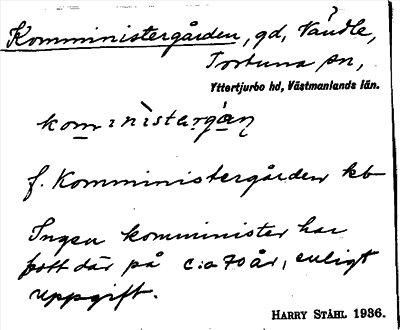 Komministergården, gd, Nändle,
Tortuna sn,
Yttertjurbo hd, Västmanlands län.
kom̲inìstàrgán
f. Komministergården kb
Ingen komminister har
bott där på c:a 70 år, enligt
uppgift.
HARRY STÅHL 1936.